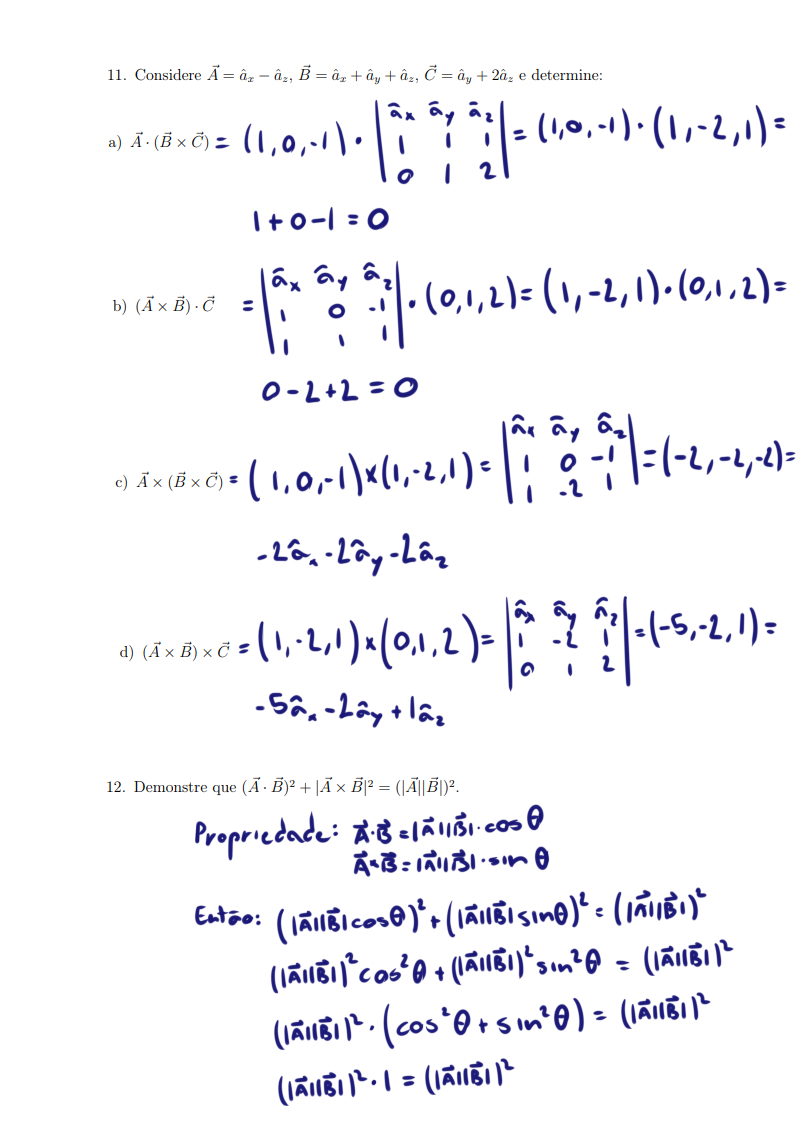 11. Considere A⃗ = âₓ − â_z, B⃗ = âₓ + â_y + â_z, C⃗ = â_y + 2â_z e determine:
a) A⃗ · (B⃗ × C⃗) = (1,0,-1) · |âₓ â_y â_z; 1 1 1; 0 1 2| = (1,0,-1) · (1,-2,1) =
1 + 0 - 1 = 0
b) (A⃗ × B⃗) · C⃗ = |âₓ â_y â_z; 1 0 -1; 1 1 1| · (0,1,2) = (1,-2,1) · (0,1,2) =
0 - 2 + 2 = 0
c) A⃗ × (B⃗ × C⃗) = (1,0,-1) × (1,-2,1) = |âₓ â_y â_z; 1 0 -1; 1 -2 1| = (-2,-2,-2) =
-2âₓ - 2â_y - 2â_z
d) (A⃗ × B⃗) × C⃗ = (1,-2,1) × (0,1,2) = |âₓ â_y â_z; 1 -2 1; 0 1 2| = (-5,-2,1) =
-5âₓ - 2â_y + 1â_z
12. Demonstre que (A⃗ · B⃗)² + |A⃗ × B⃗|² = (|A⃗||B⃗|)².
Propriedade: A⃗·B⃗ = |A⃗||B⃗|·cos θ
A⃗×B⃗ = |A⃗||B⃗|·sin θ
Então: (|A⃗||B⃗|cosθ)² + (|A⃗||B⃗|sinθ)² = (|A⃗||B⃗|)²
(|A⃗||B⃗|)²cos²θ + (|A⃗||B⃗|)²sin²θ = (|A⃗||B⃗|)²
(|A⃗||B⃗|)² · (cos²θ + sin²θ) = (|A⃗||B⃗|)²
(|A⃗||B⃗|)² · 1 = (|A⃗||B⃗|)²